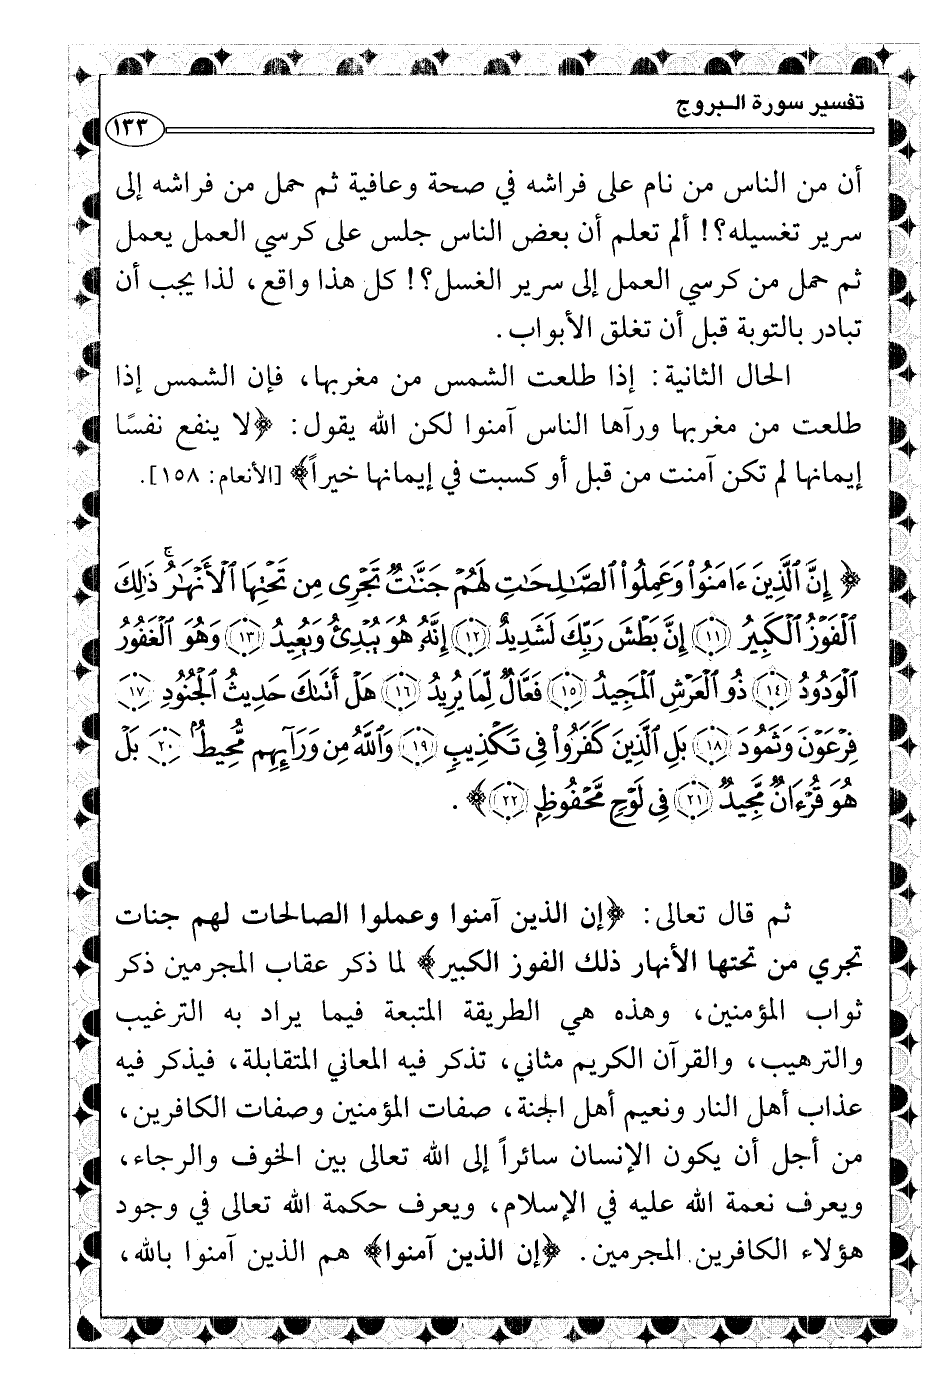 تفسير سورة البروج
١٣٣
أن من الناس من نام على فراشه في صحة وعافية ثم حمل من فراشه إلى
سرير تغسيله؟! ألم تعلم أن بعض الناس جلس على كرسي العمل يعمل
ثم حمل من كرسي العمل إلى سرير الغسل؟! كل هذا واقع، لذا يجب أن
تبادر بالتوبة قبل أن تغلق الأبواب.
الحال الثانية: إذا طلعت الشمس من مغربها، فإن الشمس إذا
طلعت من مغربها ورآها الناس آمنوا لكن الله يقول: ﴿لا ينفع نفسًا
إيمانها لم تكن آمنت من قبل أو كسبت في إيمانها خيراً﴾ [الأنعام: ١٥٨].
﴿ إِنَّ الَّذِينَ ءَامَنُواْ وَعَمِلُواْ الصَّـٰلِحَـٰتِ لَهُمْ جَنَّـٰتٌ تَجْرِى مِن تَحْتِهَا الْأَنْهَـٰرُ ۚ ذَٰلِكَ
الْفَوْزُ الْكَبِيرُ (١١) إِنَّ بَطْشَ رَبِّكَ لَشَدِيدٌ (١٢) إِنَّهُۥ هُوَ يُبْدِئُ وَيُعِيدُ (١٣) وَهُوَ الْغَفُورُ
الْوَدُودُ (١٤) ذُو الْعَرْشِ الْمَجِيدُ (١٥) فَعَّالٌ لِّمَا يُرِيدُ (١٦) هَلْ أَتَىٰكَ حَدِيثُ الْجُنُودِ (١٧)
فِرْعَوْنَ وَثَمُودَ (١٨) بَلِ الَّذِينَ كَفَرُواْ فِى تَكْذِيبٍ (١٩) وَاللَّهُ مِن وَرَآئِهِم مُّحِيطٌۢ (٢٠) بَلْ
هُوَ قُرْءَانٌ مَّجِيدٌ (٢١) فِى لَوْحٍ مَّحْفُوظٍ (٢٢)﴾ .
ثم قال تعالى: ﴿إن الذين آمنوا وعملوا الصالحات لهم جنات
تجري من تحتها الأنهار ذلك الفوز الكبير﴾ لما ذكر عقاب المجرمين ذكر
ثواب المؤمنين، وهذه هي الطريقة المتبعة فيما يراد به الترغيب
والترهيب، والقرآن الكريم مثاني، تذكر فيه المعاني المتقابلة، فيذكر فيه
عذاب أهل النار ونعيم أهل الجنة، صفات المؤمنين وصفات الكافرين،
من أجل أن يكون الإنسان سائراً إلى الله تعالى بين الخوف والرجاء،
ويعرف نعمة الله عليه في الإسلام، ويعرف حكمة الله تعالى في وجود
هؤلاء الكافرين المجرمين. ﴿إن الذين آمنوا﴾ هم الذين آمنوا بالله،